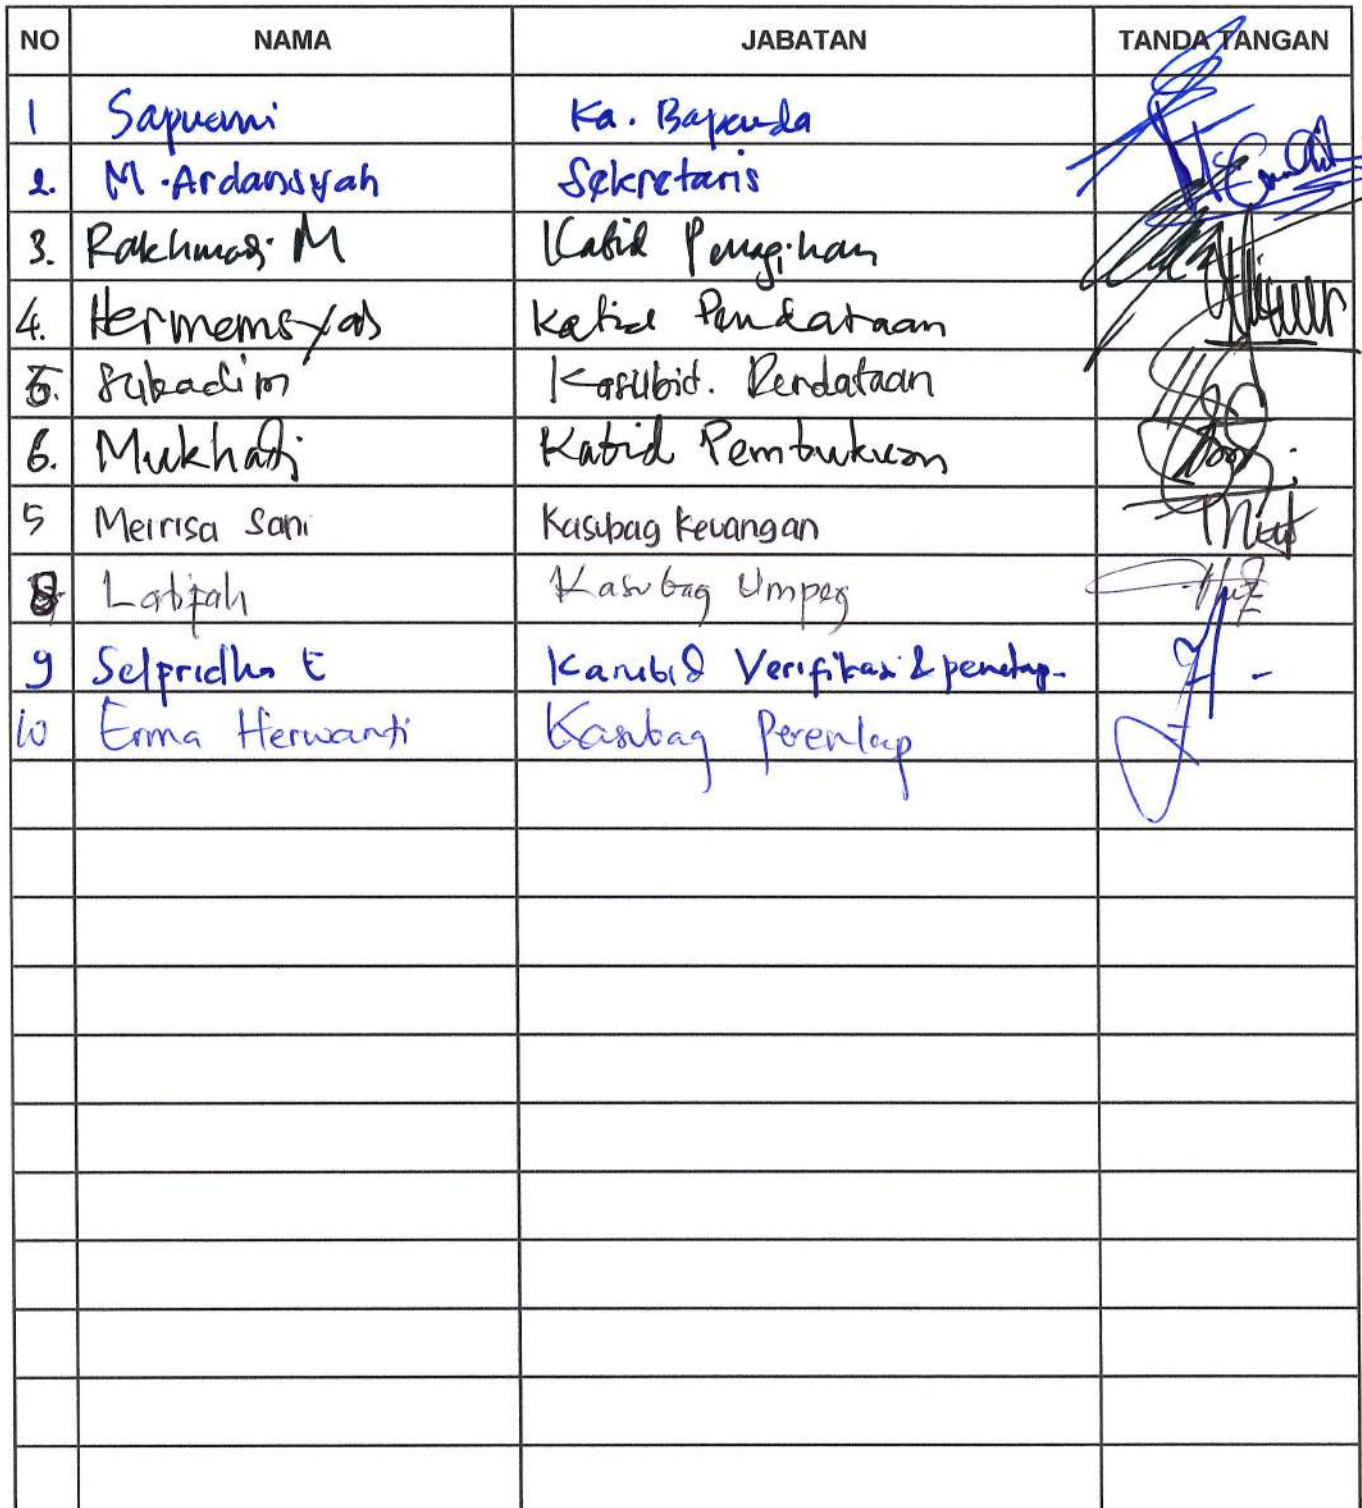 NO NAMA JABATAN TANDA TANGAN
1 Sapuani Ka. Bapenda
2. M. Ardansyah Sekretaris
3. Rakhmadi M Kabid Penagihan
4. Hermemsyah Kabid Pendataan
5. Sukadim Kasubid. Pendataan
6. Mukhadi Kabid Pembukuan
5 Meirisa Sani Kasubag Keuangan
8. Latifah Kasubag Umpeg
9 Selpridha E Kasubid Verifikasi & penetap.
10 Erma Herwanti Kasubag Perenlap